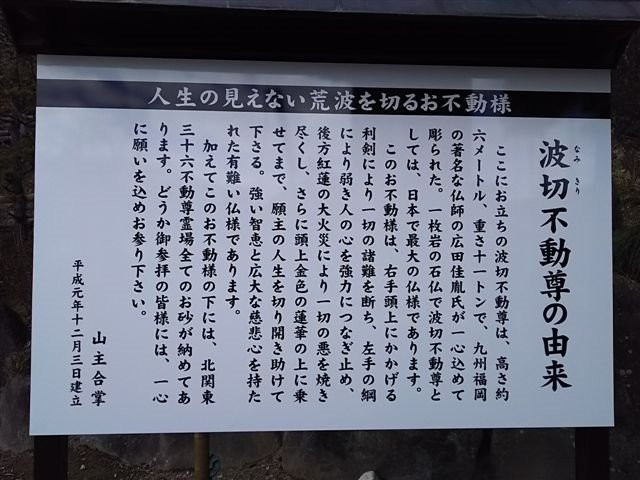 人生の見えない荒波を切るお不動様
波切不動尊の由来
なみ きり
ここにお立ちの波切不動尊は、高さ約
六メートル、重さ十一トンで、九州福岡
の著名な仏師の広田佳胤氏が一心込めて
彫られた。一枚岩の石仏で波切不動尊と
しては、日本で最大の仏様であります。
このお不動様は、右手頭上にかかげる
利剣により一切の諸難を断ち、左手の綱
により弱き人の心を強力につなぎ止め、
後方紅蓮の大火災により一切の悪を焼き
尽くし、さらに頭上金色の蓮華の上に乗
せてまで、願主の人生を切り開き助けて
下さる。強い智恵と広大な慈悲心を持た
れた有難い仏様であります。
加えてこのお不動様の下には、北関東
三十六不動尊霊場全てのお砂が納めてあ
ります。どうか御参拝の皆様には、一心
に願いを込めお参り下さい。
山主合掌
平成元年十二月三日建立